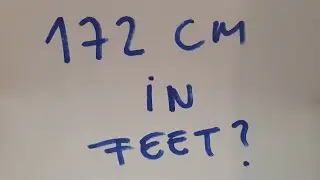 172 CM
iN
FEET?